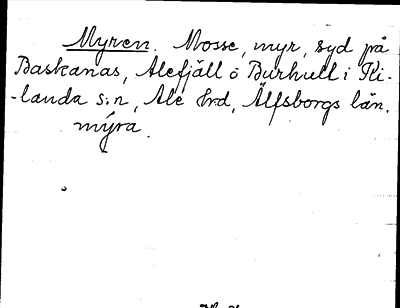 Myren. Mosse, myr, syd på
Baskanas, Alefjäll ö Burhull i Ki-
-landa s:n, Ale hrd, Älfsborgs län.
mýra.